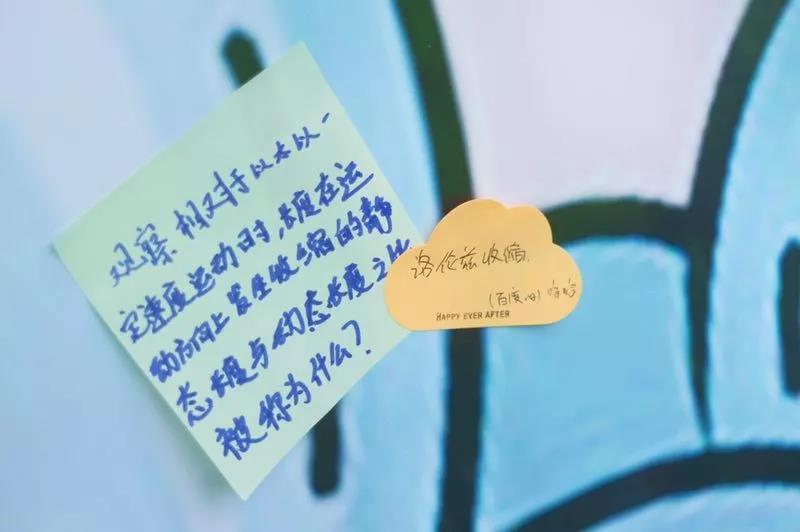 观察相对于以太以一
定速度运动时,长度在运
动方向上发生收缩的静
态长度与动态长度之比
被称为什么?
洛伦兹收缩.
(百度的)哈哈
HAPPY EVER AFTER